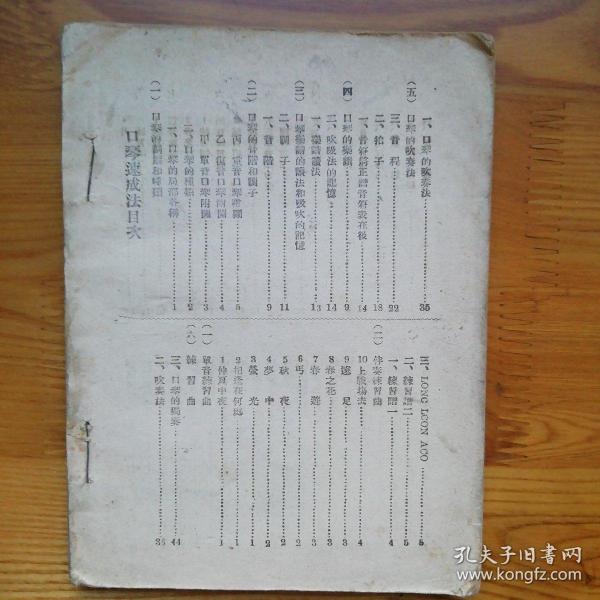 口琴速成法目次
(一) 口琴的構造和種類
一、口琴的局部名稱 1
二、口琴的種類 2
甲、單音口琴附圖 3
乙、複音口琴附圖 4
丙、重音口琴附圖 5
(二) 口琴的音階和調子
一、音階 9
二、調子 11
(三) 口琴樂譜的讀法和吸吹的記憶
一、樂譜讀法 13
二、吹吸法的記憶 14
(四) 口琴的樂譜 9
一、音符附正譜音符表在後 14
二、拍子 18
三、音程 22
(五) 口琴的吹奏法
一、口琴的吹奏法 35
二、吹奏法 36
三、口琴的獨奏 44
(六) 練習曲
(一) 單音練習曲
1 仲夏中夜 1
2 相逢在何處 1
3 螢光 1
4 夢中 2
5 秋夜 2
6 丐 2
7 春遊 3
8 春之花 3
9 遠足 3
10 上戰場去 4
(二) 伴奏練習曲
一、練習譜一 4
二、練習譜二 5
三、LONG LOON AGO 5
孔夫子旧书网
www.kongfz.com